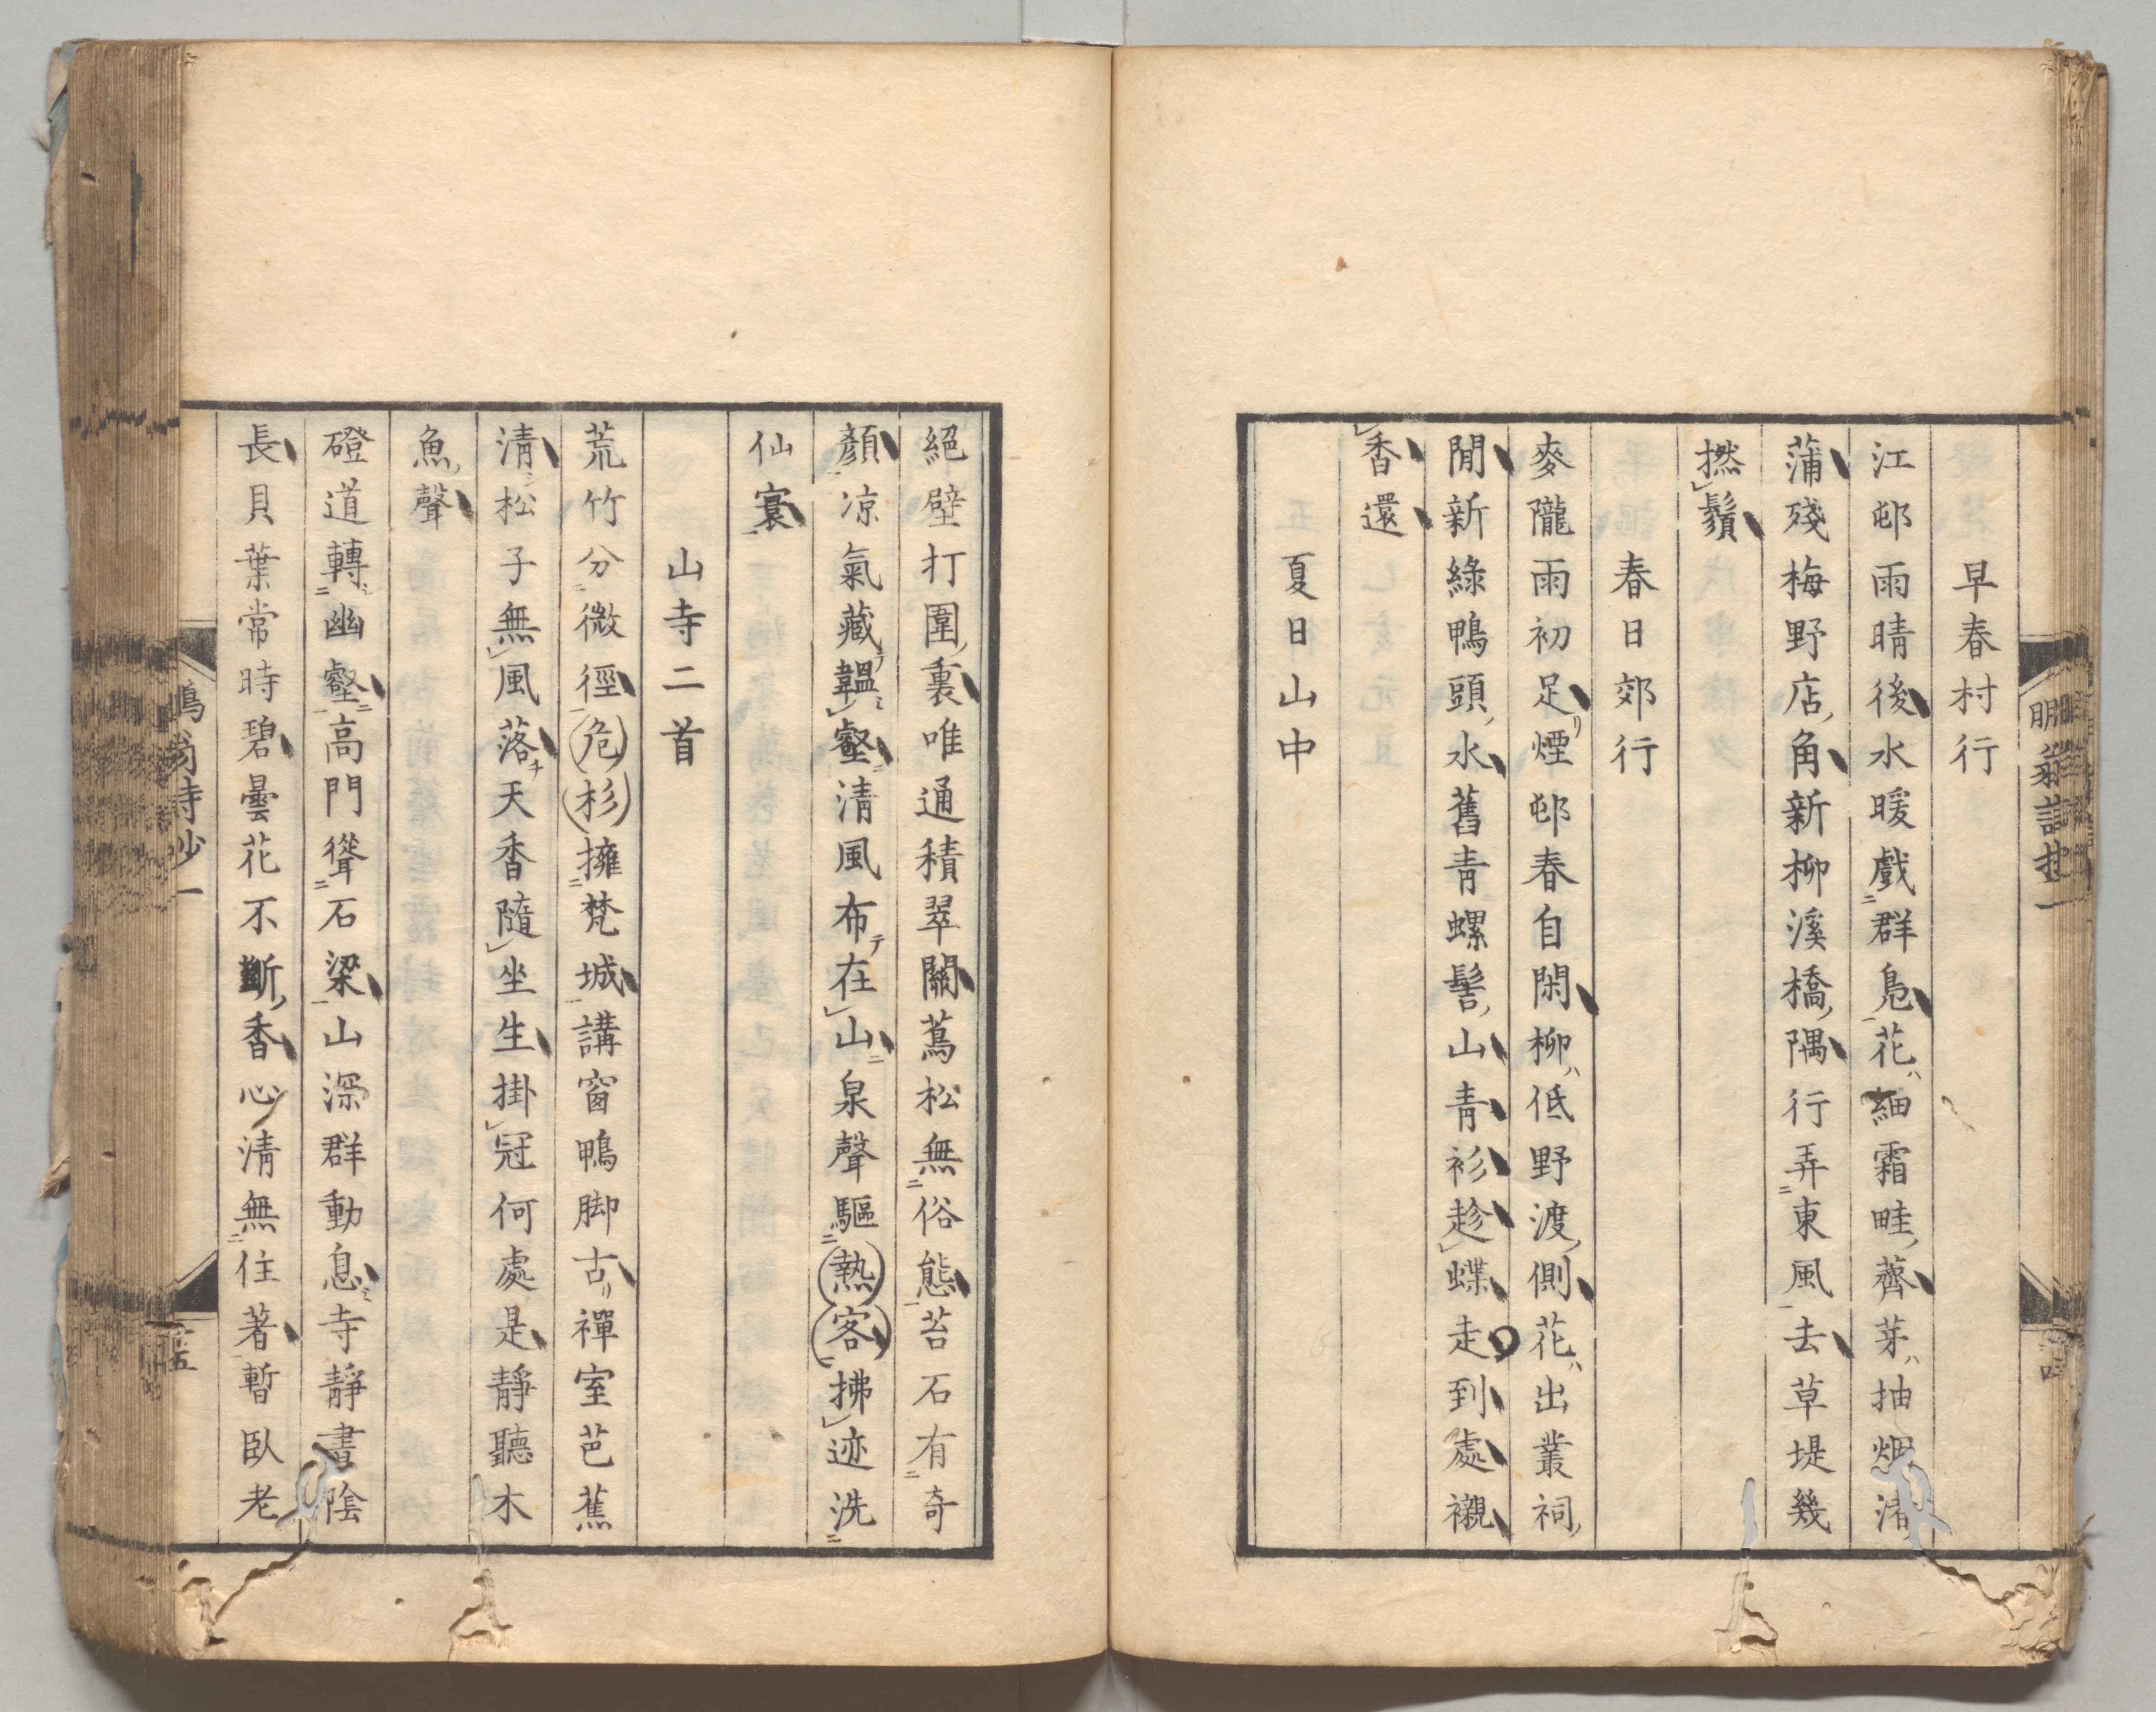 早春村行
江邨雨晴後水暖戲群鳧花ハ細霜畦薺芽ハ抽烟渚
蒲殘梅野店角新柳溪橋隅行弄東風去草堤幾
撚鬚
春日郊行
麥隴雨初足煙邨春自閑柳ハ低野渡側花ハ出叢祠
閒新綠鴨頭水舊青螺髻山青衫趁蝶走到處襯
香還
夏日山中
絕壁打圍裏唯通積翠關蔦松無俗態苔石有奇
顏凉氣藏韞壑清風布在山泉聲驅熱客拂迹洗
仙寰
山寺二首
荒竹分微徑危杉擁梵城講窗鴨脚古禪室芭蕉
清松子無風落天香隨坐生掛冠何處是靜聽木
魚聲
磴道轉幽壑高門聳石梁山深群動息寺靜書陰
長貝葉常時碧曇花不斷香心清無住著暫臥老
翁詩抄一